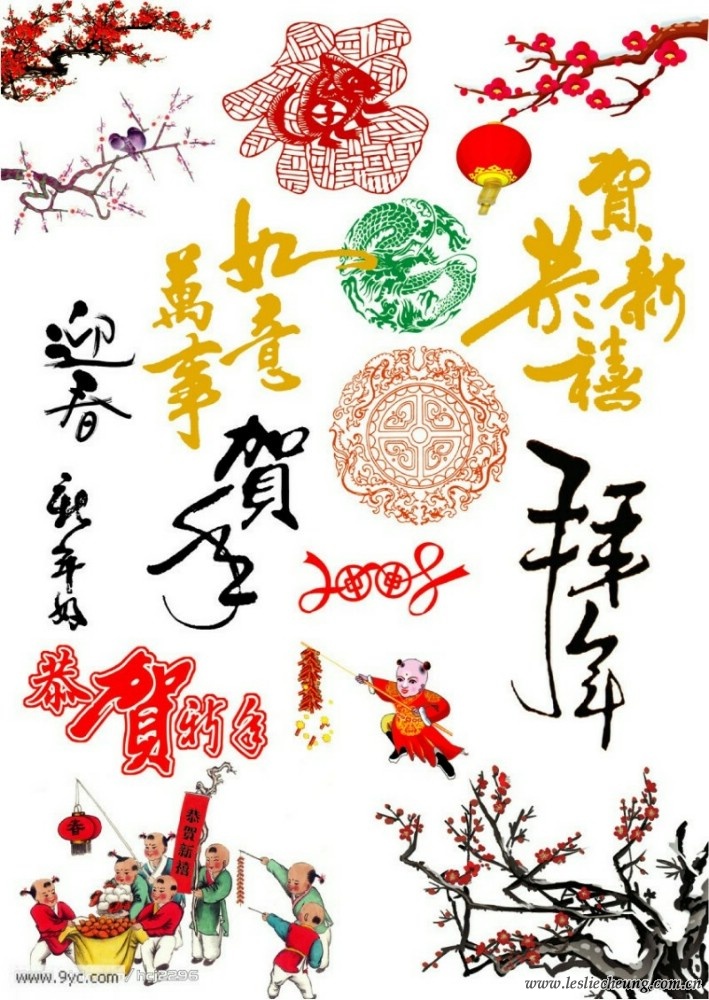 恭賀新禧
萬事如意
迎春
賀年
新年好
2008
拜年
恭賀新年
春
恭賀新禧
www.9yc.com
www.lesliecheung.com.cn